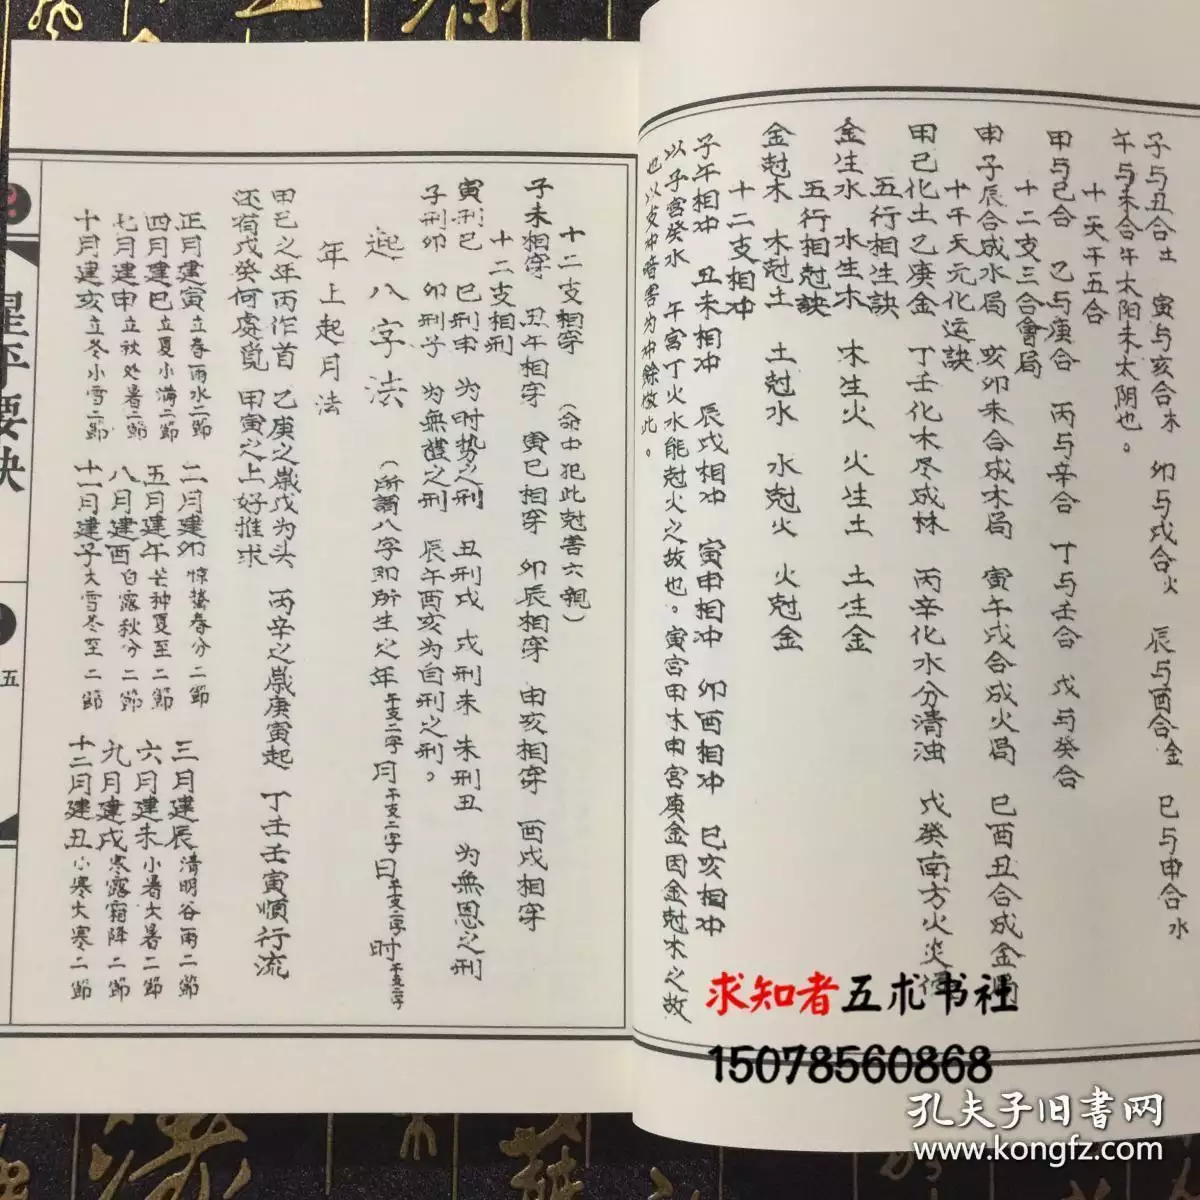 子与丑合土　寅与亥合木　卯与戌合火　辰与酉合金　巳与申合水
午与未合午太阳未太阴也。
十天干五合
甲与己合　乙与庚合　丙与辛合　丁与壬合　戊与癸合
十二支三合會局
申子辰合成水局　亥卯未合成木局　寅午戌合成火局　巳酉丑合成金局
十干天元化运訣
甲己化土乙庚金　丁壬化木尽成林　丙辛化水分清浊　戊癸南方火炎
五行相生訣
金生水　水生木　木生火　火生土　土生金
五行相尅訣
金尅木　木尅土　土尅水　水尅火　火尅金
十二支相冲
子午相冲　丑未相冲　辰戌相冲　寅申相冲　卯酉相冲　巳亥相冲
以子宫癸水　午宫丁火水能尅火之故也。寅宫甲木申宫庚金因金尅木之故
也以支冲暗害为冲餘倣此。
十二支相穿（命中犯此尅害六親）
子未相穿　丑午相穿　寅巳相穿　卯辰相穿　申亥相穿　酉戌相穿
十二支相刑
寅刑巳　巳刑申　为时势之刑　丑刑戌　戌刑未　未刑丑　为無恩之刑
子刑卯　卯刑子　为無禮之刑　辰午酉亥为自刑之刑。
起八字法（所謂八字即所生之年干支二字月干支二字日干支二字时干支二字
年上起月法
甲己之年丙作首　乙庚之歲戊为头　丙辛之歲庚寅起　丁壬壬寅順行流
还有戊癸何處覓　甲寅之上好推求
正月建寅立春雨水二節　二月建卯惊蟄春分二節　三月建辰清明谷雨二節
四月建巳立夏小满二節　五月建午芒种夏至二節　六月建未小暑大暑二節
七月建申立秋处暑二節　八月建酉白露秋分二節　九月建戌寒露霜降二節
十月建亥立冬小雪二節　十一月建子大雪冬至二節　十二月建丑小寒大寒二節
星平要訣
五
求知者五术书社
15078560868
孔夫子旧書网
www.kongfz.com